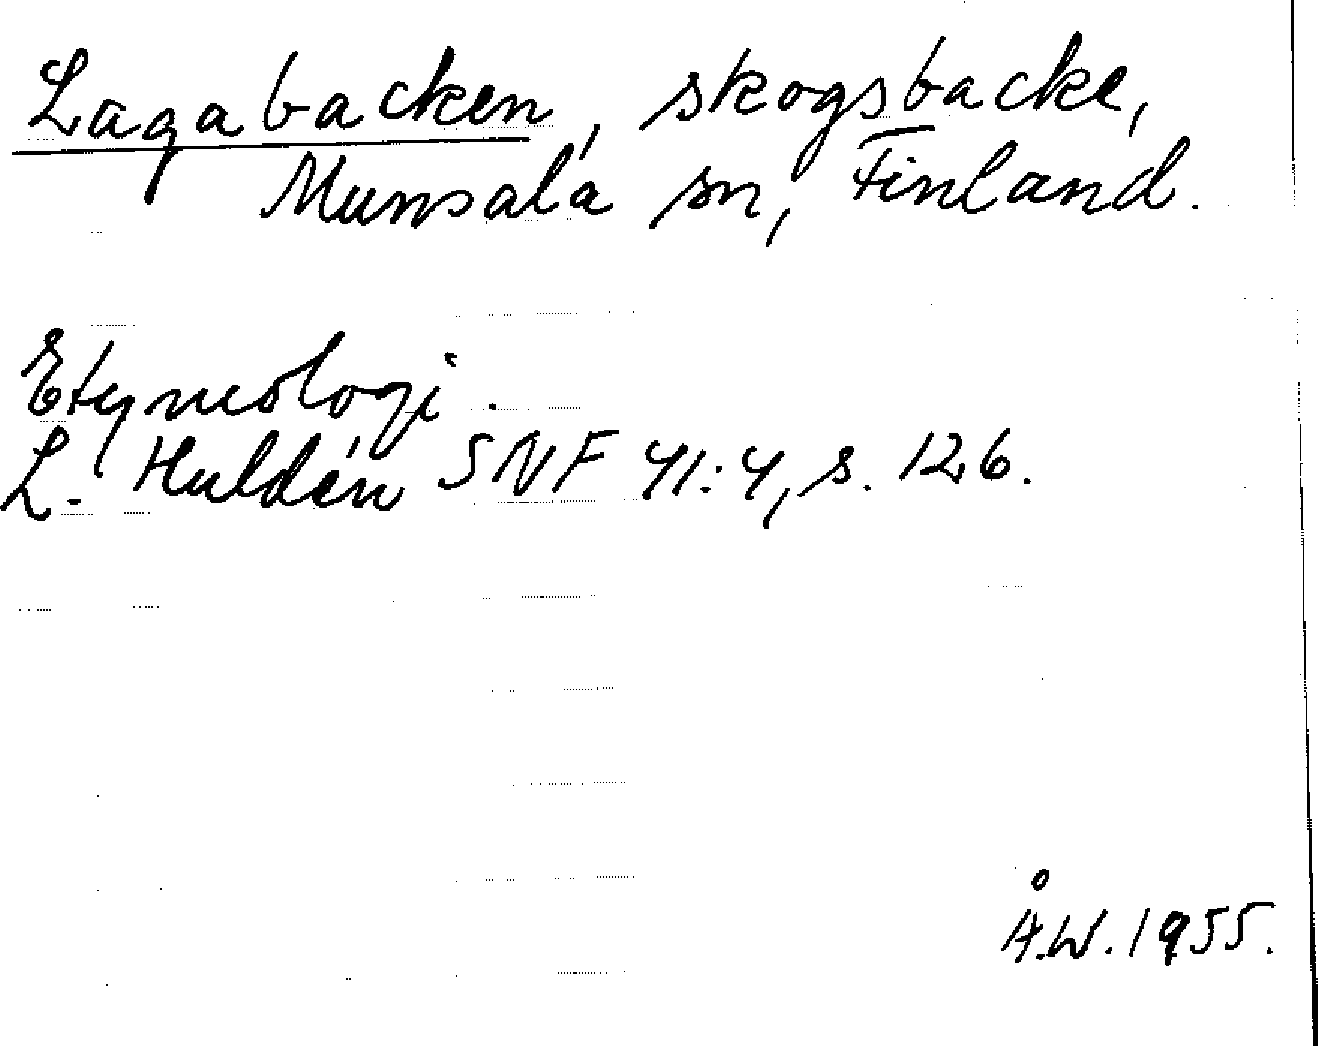 Lagabacken, skogsbacke,
Munsala sn, Finland.
Etymologi.
L. Huldén SNF 41:4, s. 126.
Å.W. 1955.